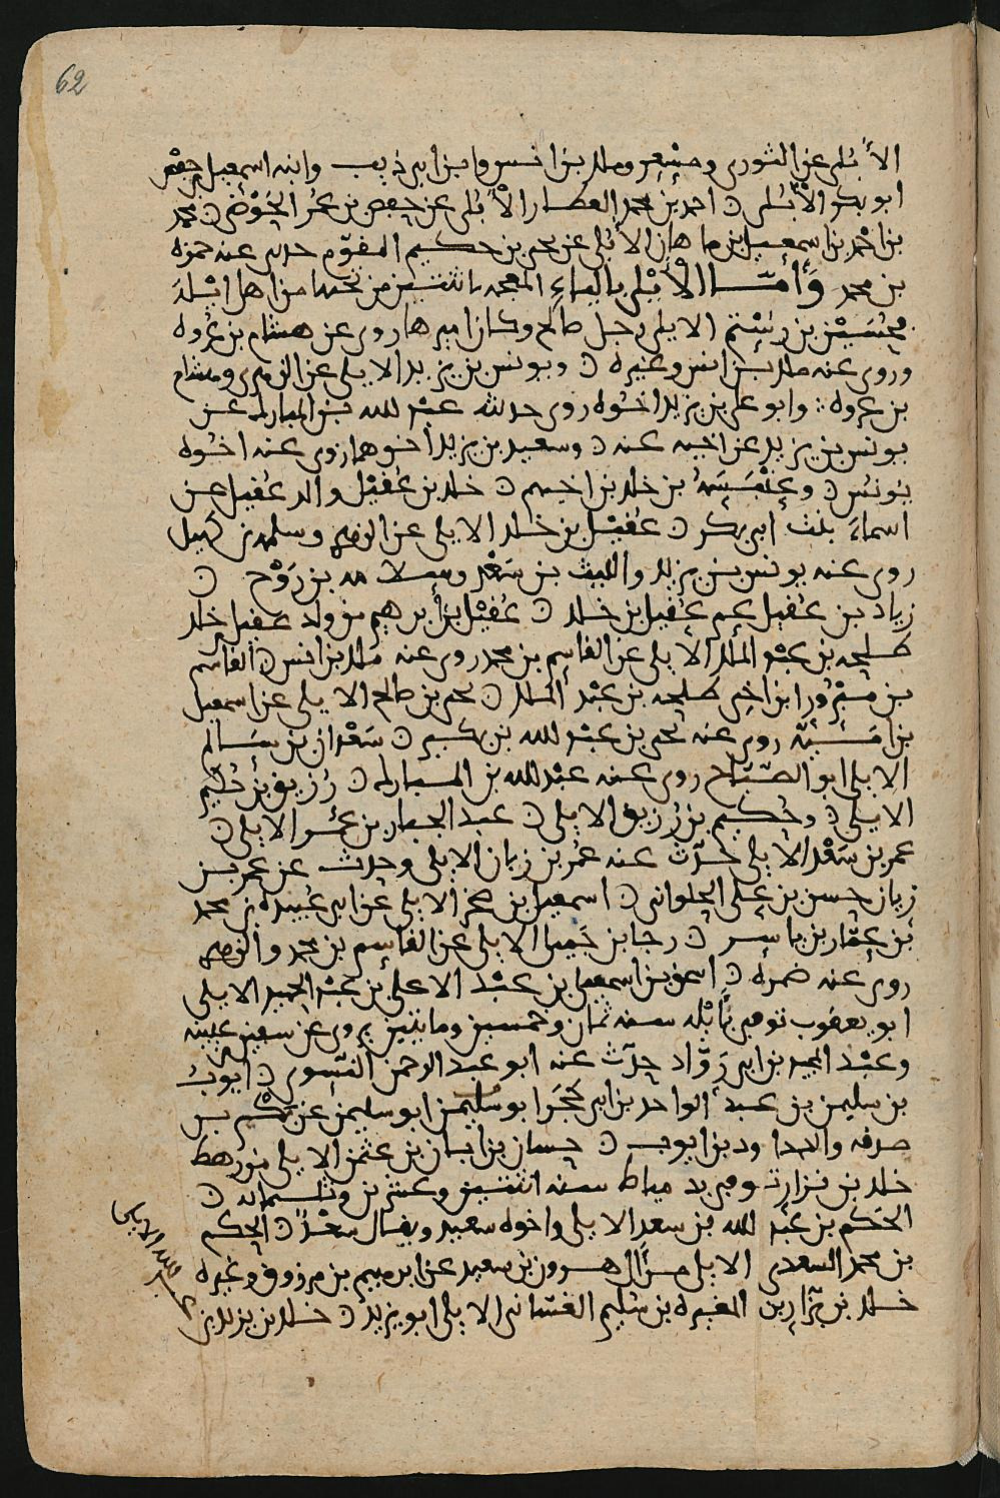 62
الأُبُلى عن الثورى ومِسْعر وملك بن انس وابن ابى ذيب وابنه اسمعيل بن حفص
ابو بكر الأُبُلى ن احمد بن محمد العطار الأُبُلى عن حفص بن عُمَر الحَوْضى ن محمد
بن احمد بن اسمعيل بن ماهان الأُبُلى عن يحيى بن حكيم المقوّم حدث عنه حمزه
بن محمد وَأَمَّـا الأَيْلى بالياءِ المعجمه باثنتين من تحتها من اهل ايْلَهَ
فحُسَيْن بن رُسْتُم الايلى رجل صالح وكان اميرها روى عن هشام بن عُروه
وروى عنه ملك بن انس وغيره ن ويونس بن يزيد الايلى عن الزهرى وهشام
بن عروه وابو على بن يزيد اخوه روى حديثه عبْد الله بن المبارك عن
يونس بن يزيد عن اخيه عنه ن وسعيد بن يزيد أخوهما روى عنه اخوه
يونس ن وعَنْبَسَه بن خلد بن اخيهم ن خلد بن عُقيْل والد عُقيل عن
اسماءَ بنت أبى بكر ن عُقيْل بن خلد الايلى عن الزهرى وسلمه بن كهيل
روى عنه يونس بن يزيد والليث بن سَعْد وسلامه بن رَوْح ن
زياد بن عُقيل عم عُقيل بن خلد ن عُقيْل بن ابرهيم من ولد عقيل بن خلد
طلحه بن عبْد الملك الأيلى عن القاسِم بن محمد روى عنه مَلك بن انس ن القاسم
بن مَبْرُور ابن اخى طلحه بن عبْد الملك ن يحيى بن صالح الايلى عن اسمعيل
بن امَيّه روى عنه يحيى بن عبْد الله بن بكير ن سَعْدان بن سَالم
الايلى ابو الصَّبّاح روى عنه عبْد الله بن المبارك ن رُزيق بن حُكَيْم
الايلى ن وحُكيم بن رُزيق الايلى ن عبد الجبار بن عُمَر الايلى ن
عمر بن سَعْد الأيلى حدّث عنه عُمر بن زيان الايلى وحدث عن عمر بن
زيان حسن بن على الحلوانى ن اسمعيل بن صخر الايلى عن ابى عُبَيْده بن محمد
بن عمّار بن ياسِر ن رجا بن جَميل الايلى عن القاسِم بن محمد والزهرى
روى عنه ضمرَه ن اسحق بن اسمعيل بن عبْد الاعلى بن عبْد الحميد الايلى
ابو يعقوب توفى بأيْله سنه ثمان وخمسين ومايتين يروى عن سفين بن عيينه
وعبْد المجيد بن ابى رَوّاد حدّث عنه ابو عبد الرحمن النسوى ن أيوب
بن سليمن بن عبد الواحد بن ابى حَجَر ابو سُليمن ابو سليمن عن بَكْر بن
صدقه والد داود بن ايوب ن حسان بن ابان بن عثمن الايلى من رهط
خلد بن نزار توفى بدمياط سنه اثنتين وعشرين وثلثمائه ن
الحَكم بن عبْد الله بن سعد الايلى واخوه سعيد ويقال سَعْد ن الحكم
بن محمد السعدى الايلى من آل هرون بن سعيد عن ابرهيم بن مرزوق وغيره
خلد بن نِزَار بن المغيره بن سُليم الغسّانى الايلى ابو يزيد ن خلد بن يزيد بن
عبد الله الايلى